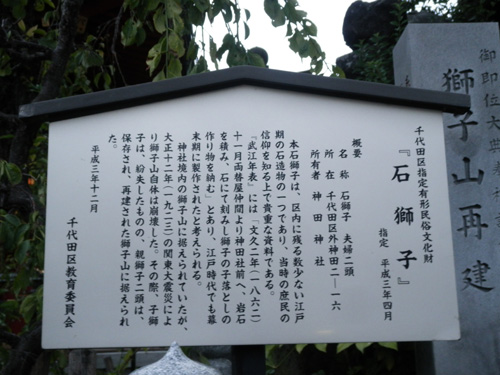 千代田区指定有形民俗文化財
『石獅子』
指定 平成三年四月
概要
名称 石獅子 夫婦二頭
所在 千代田区外神田二―一六
所有者 神田神社
本石獅子は、区内に残る数少ない江戸
期の石造物の一つであり、当時の庶民の
信仰を知る上で貴重な資料である。
『武江年表』には「文久二年(一八六二)
十一月両替屋仲間より神田社前へ、岩石
を積み、石にて刻みし獅子の子落としの
作り物を納む」とあり、江戸時代でも幕
末期に製作されたと考えられる。
神社境内の獅子山に据えられていたが、
大正十二年(一九二三)の関東大震災によ
り獅子山自体は崩壊した。その際、子獅
子は、紛失したものの、親獅子二頭は、
保存され、再建された獅子山に据えられ
た。
平成三年十二月
千代田区教育委員会
御即位大典
獅子山再建